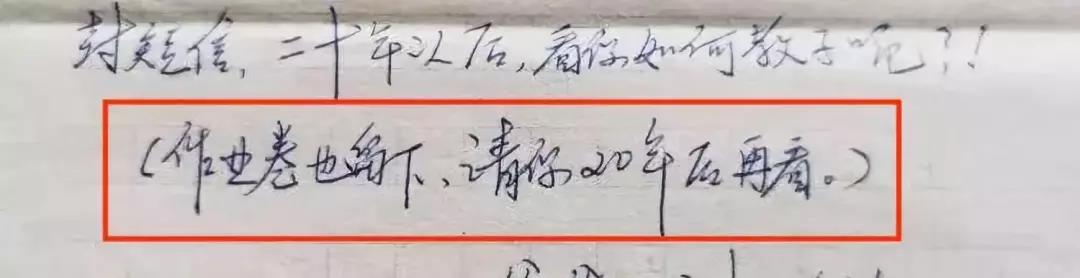 封短信,二十年以后,看你如何教子呢?!
(作业卷也留下、请你20年后再看。)